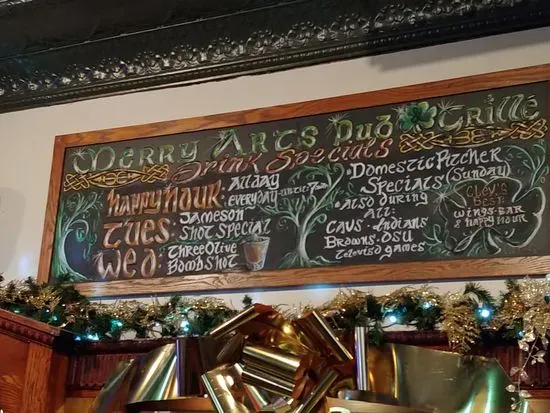 Merry Arts Pub & Grille
Drink Specials
Happy Hour • All day everyday until 7pm
Tues • Jameson Shot Special
Wed • Three Olive Bomb Shot
• Domestic Pitcher Specials (Sunday)
• Also during all: Cavs • Indians Browns • OSU Televised games
Clev's Best: Wings • Bar & Happy Hour